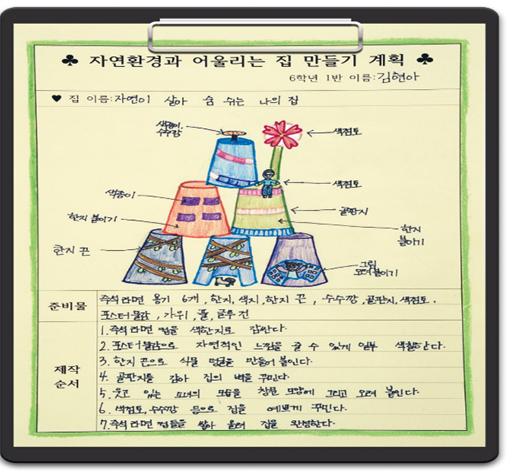 ♣ 자연환경과 어울리는 집 만들기 계획 ♣
6학년 1반 이름:김현아
♥ 집 이름:자연이 살아 숨 쉬는 나의 집
색종이,
수수깡
색점토
색종이
색점토
한지 붙이기
골판지
한지
붙이기
한지 끈
그림
오려붙이기
준비물
즉석라면 용기 6개, 한지, 색지, 한지 끈, 수수깡, 골판지, 색점토,
포스터물감, 가위, 풀, 글루건
제작
순서
1. 즉석라면 컵을 색한지로 감싼다.
2. 포스터물감으로 자연적인 느낌을 줄 수 있게 일부 색칠한다.
3. 한지끈으로 식물 덩굴을 만들어 붙인다.
4. 골판지를 감아 집의 벽을 꾸민다.
5. 웃고 있는 소녀의 모습을 창문 모양에 그리고 오려 붙인다.
6. 색점토, 수수깡 등으로 집을 예쁘게 꾸민다.
7. 즉석라면 컵들을 쌓아 올려 집을 완성한다.